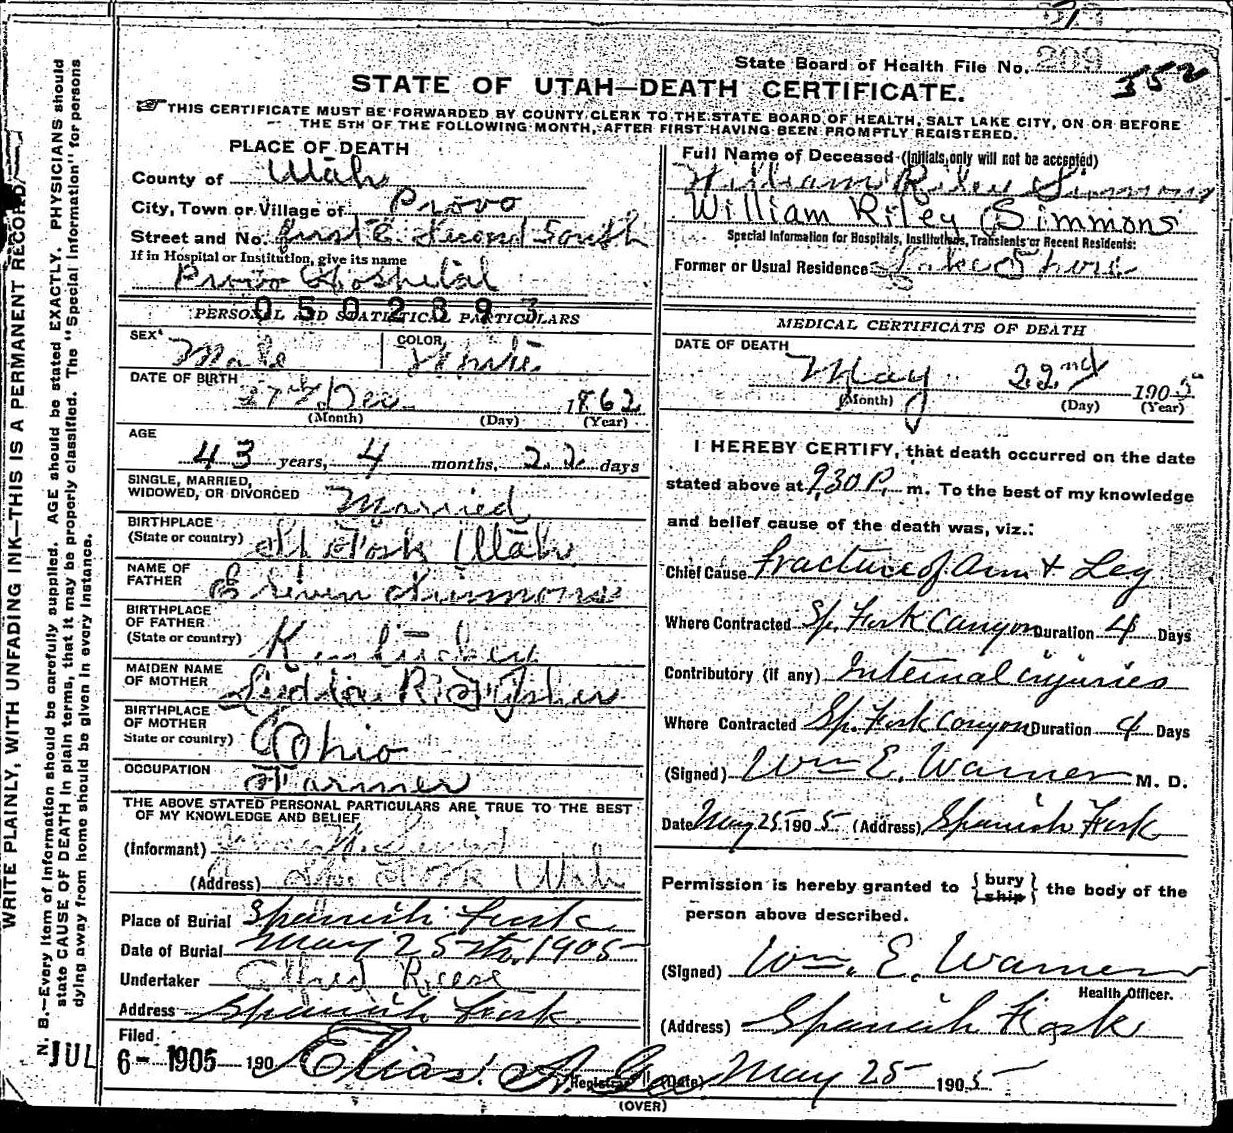 State Board of Health File No. 209
352
STATE OF UTAH—DEATH CERTIFICATE.
THIS CERTIFICATE MUST BE FORWARDED BY COUNTY CLERK TO THE STATE BOARD OF HEALTH, SALT LAKE CITY, ON OR BEFORE
THE 5TH OF THE FOLLOWING MONTH, AFTER FIRST HAVING BEEN PROMPTLY REGISTERED.
PLACE OF DEATH
County of Utah
City, Town or Village of Provo
Street and No. first E. Second South
If in Hospital or Institution, give its name
Provo Hospital
0502893
PERSONAL AND STATISTICAL PARTICULARS
SEX Male COLOR White
DATE OF BIRTH 27th Dec 1862
(Month) (Day) (Year)
AGE
43 years, 4 months, 22 days
SINGLE, MARRIED,
WIDOWED, OR DIVORCED Married
BIRTHPLACE
(State or country) Sp Fork Utah
NAME OF
FATHER Simmons
BIRTHPLACE
OF FATHER
(State or country) Kentucky
MAIDEN NAME
OF MOTHER
BIRTHPLACE
OF MOTHER
State or country) Ohio
OCCUPATION Farmer
THE ABOVE STATED PERSONAL PARTICULARS ARE TRUE TO THE BEST
OF MY KNOWLEDGE AND BELIEF
(Informant)
(Address) Sp. Fork Utah
Place of Burial Spanish Fork
Date of Burial May 25th, 1905
Undertaker Alfred Reese
Address Spanish Fork.
Filed
JUL 6- 1905 190 Elias A. Gee
Registrar
Full Name of Deceased (Initials only will not be accepted)
William Riley Simmons
William Riley Simmons
Special Information for Hospitals, Institutions, Transients or Recent Residents:
Former or Usual Residence Lake Shore
MEDICAL CERTIFICATE OF DEATH
DATE OF DEATH
May 22nd 1905
(Month) (Day) (Year)
I HEREBY CERTIFY, that death occurred on the date
stated above at 9,30 P. m. To the best of my knowledge
and belief cause of the death was, viz.:
Chief Cause Fracture of Arm + Leg
Where Contracted Sp. Fork Canyon Duration 4 Days
Contributory (if any) Internal injuries
Where Contracted Sp. Fork Canyon Duration 4 Days
(Signed) Wm E. Warner M. D.
Date May 25 1905 (Address) Spanish Fork
Permission is hereby granted to { bury ship } the body of the
person above described.
(Signed) Wm. E. Warner
Health Officer.
(Address) Spanish Fork
(Date) May 25 1905
(OVER)
WRITE PLAINLY, WITH UNFADING INK—THIS IS A PERMANENT RECORD.
N. B.—Every item of information should be carefully supplied. AGE should be stated EXACTLY. PHYSICIANS should
state CAUSE OF DEATH in plain terms, that it may be properly classified. The "Special Information" for persons
dying away from home should be given in every instance.